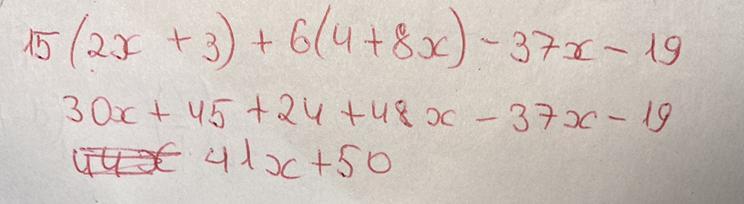 15(2x + 3) + 6(4+8x) - 37x - 19
30x + 45 + 24 + 48x - 37x - 19
41x + 50